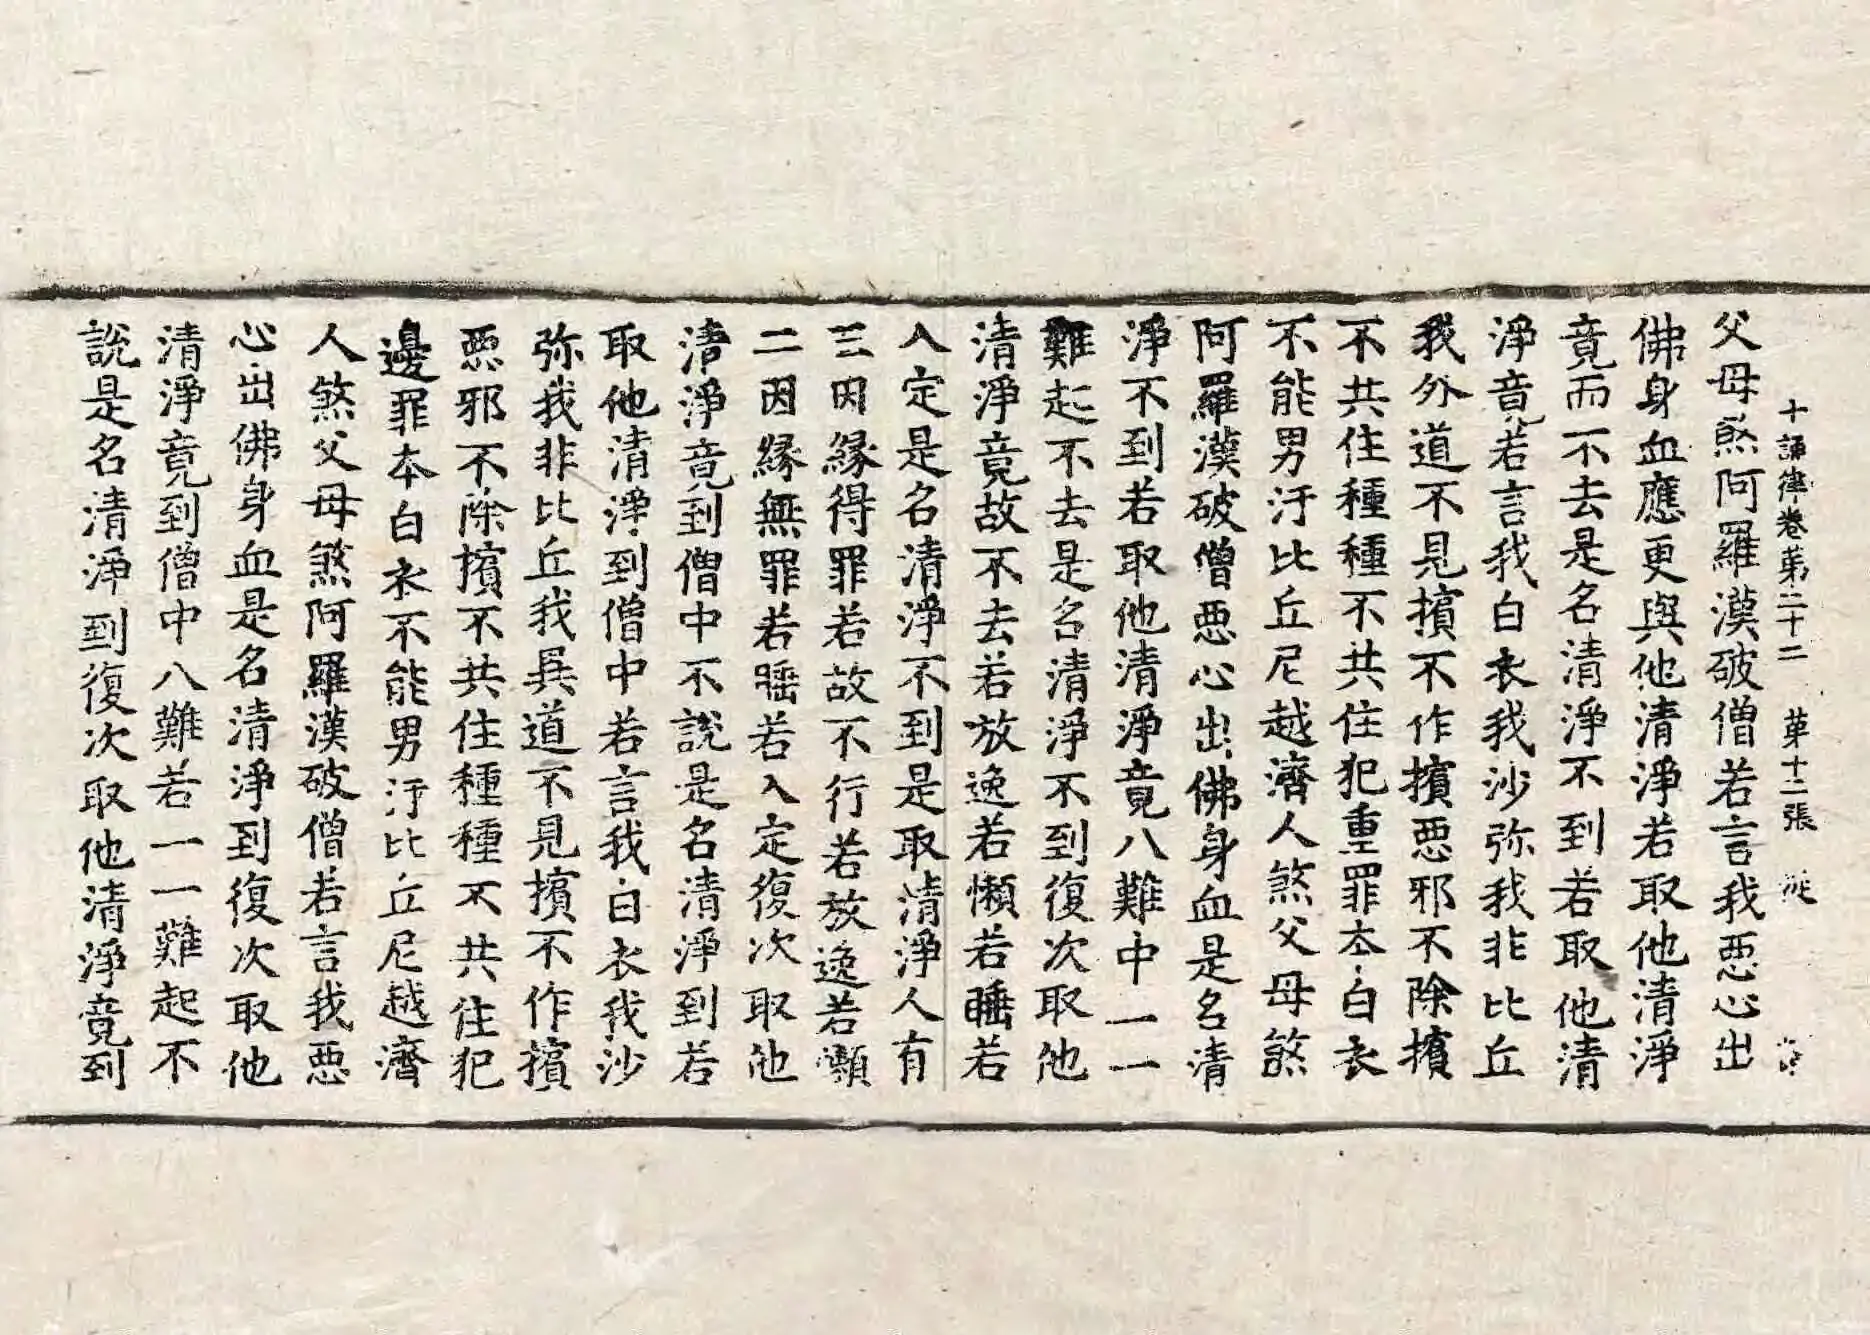 十誦律卷第二十二 第十二張
父母煞阿羅漢破僧若言我惡心出
佛身血應更與他清淨若取他清淨
竟而不去是名清淨不到若取他清
淨竟若言我白衣我沙弥我非比丘
我外道不見擯不作擯惡邪不除擯
不共住種種不共住犯重罪本白衣
不能男汙比丘尼越濟人煞父母煞
阿羅漢破僧惡心出佛身血是名清
淨不到若取他清淨竟八難中一一
難起不去是名清淨不到復次取他
清淨竟故不去若放逸若懶若睡若
入定是名清淨不到是取清淨人有
三因緣得罪若故不行若放逸若懶
二因緣無罪若睡若入定復次取他
清淨竟到僧中不說是名清淨到若
取他清淨到僧中若言我白衣我沙
弥我非比丘我異道不見擯不作擯
惡邪不除擯不共住種種不共住犯
邊罪本白衣不能男汙比丘尼越濟
人煞父母煞阿羅漢破僧若言我惡
心出佛身血是名清淨到復次取他
清淨竟到僧中八難若一一難起不
說是名清淨到復次取他清淨竟到